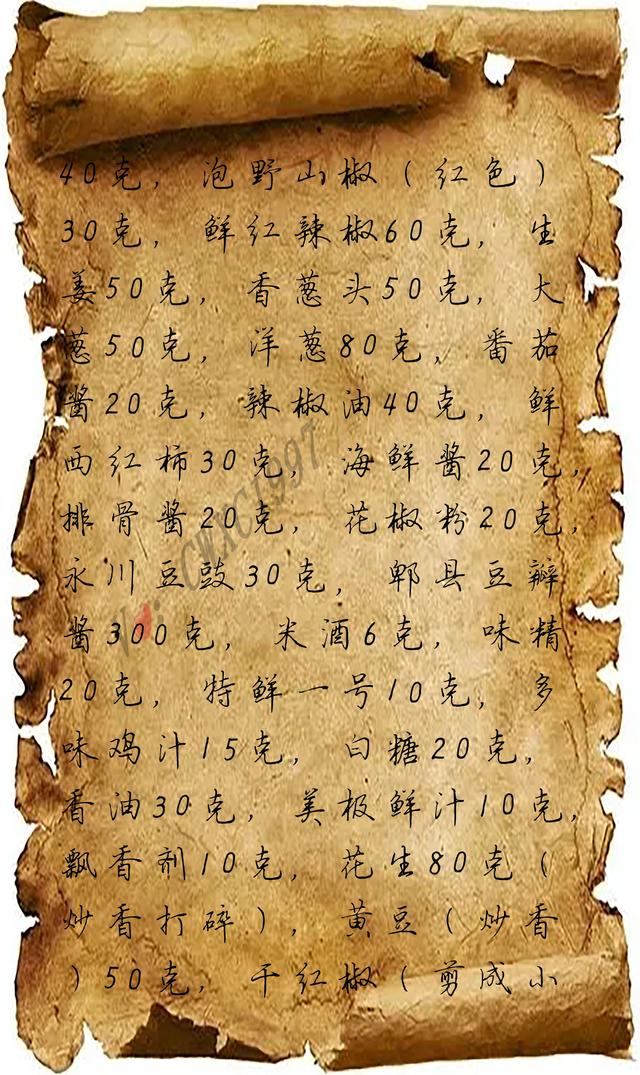 40克，泡野山椒（红色）
30克，鲜红辣椒60克，生
姜50克，香葱头50克，大
葱50克，洋葱80克，番茄
酱20克，辣椒油40克，鲜
西红柿30克，海鲜酱20克，
排骨酱20克，花椒粉20克，
永川豆豉30克，郫县豆瓣
酱300克，米酒6克，味精
20克，特鲜一号10克，多
味鸡汁15克，白糖20克，
香油30克，美极鲜汁10克，
飘香剂10克，花生80克（
炒香打碎），黄豆（炒香
）50克，干红椒（剪成小